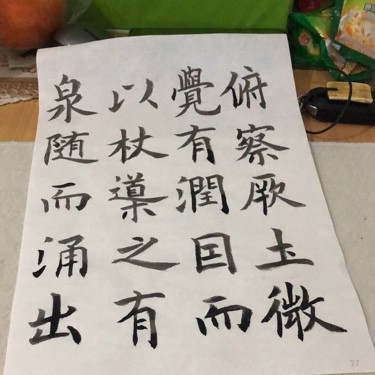 俯察厥土微
覺有潤囙而
以杖導之有
泉随而涌出